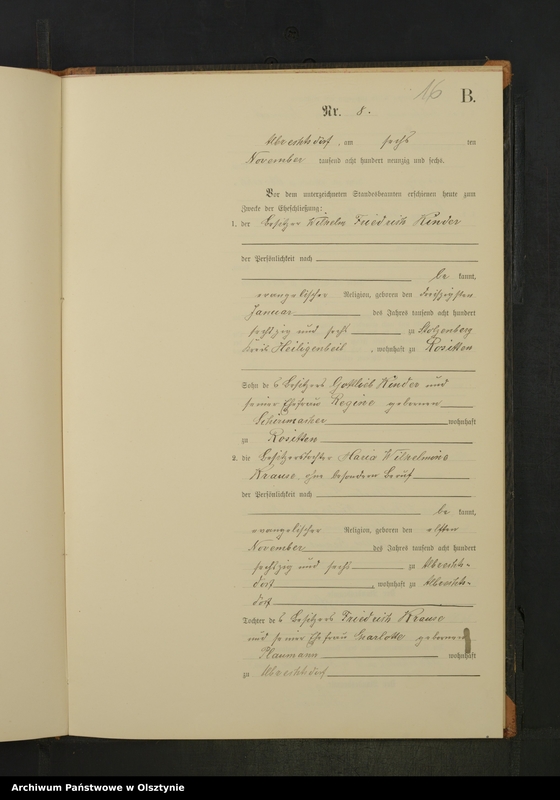 16
B.
Nr. 8.
Albrechtsdorf, am sechs ten
November tausend acht hundert neunzig und sechs.
Vor dem unterzeichneten Standesbeamten erschienen heute zum
Zwecke der Eheschließung:
1. der Besitzer Wilhelm Friedrich Kinder
der Persönlichkeit nach
be kannt,
evangelischer Religion, geboren den dreißigsten
Januar des Jahres tausend acht hundert
sechszig und sechs zu Stolzenberg
Kreis Heiligenbeil, wohnhaft zu Rositten
Sohn des Besitzers Gottlieb Kinder und
seiner Ehefrau Regine geborenen
Schirrmacher wohnhaft
zu Rositten
2. die Besitzerstochter Maria Wilhelmine
Krause, ohne besondern Beruf
der Persönlichkeit nach
be kannt,
evangelischer Religion, geboren den elften
November des Jahres tausend acht hundert
sechszig und sechs zu Albrechts-
dorf, wohnhaft zu Albrechts-
dorf
Tochter des Besitzers Friedrich Krause
und seiner Ehefrau Charlotte geborenen
Plaumann wohnhaft
zu Albrechtsdorf
Archiwum Państwowe w Olsztynie